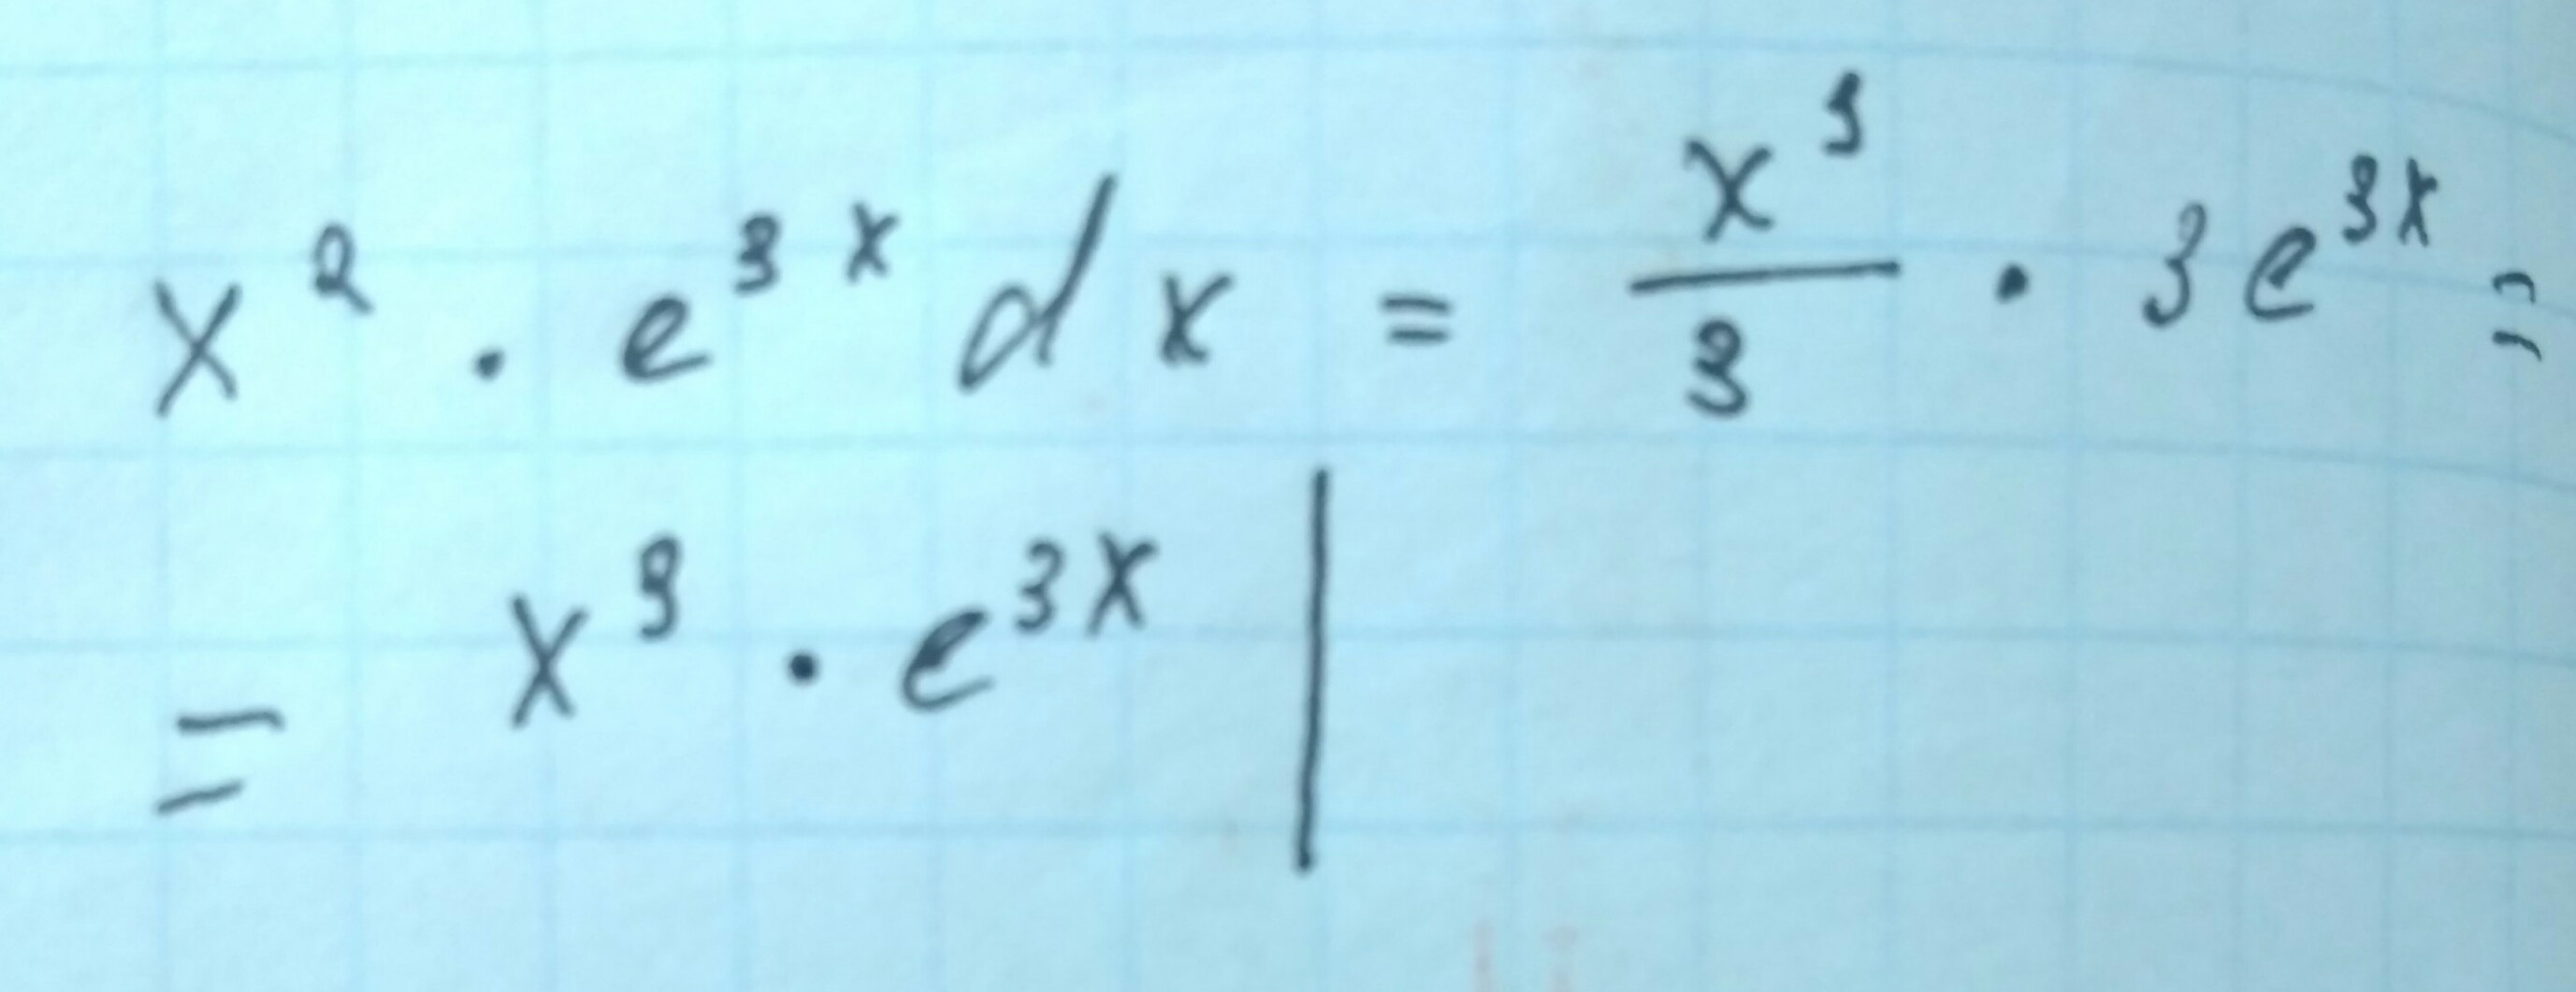 x² · e³ˣ dx = x³/3 · 3e³ˣ =
= x³ · e³ˣ |